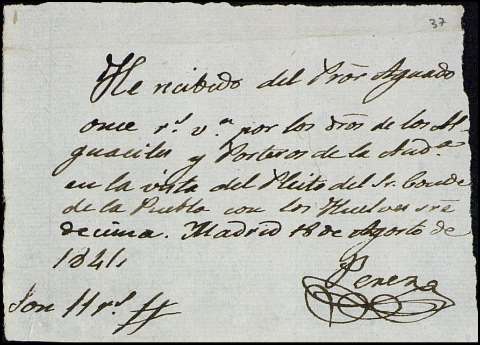 37
He recibido del Pror Aguado
once rs. vn. por los dros de los Al-
guaciles y Porteros de la Auda
en la vista del Pleito del Sr. Conde
de la Puebla con los Huelves sre
decima. Madrid 18 de Agosto de
1841
Perez
Son 11 rs. //